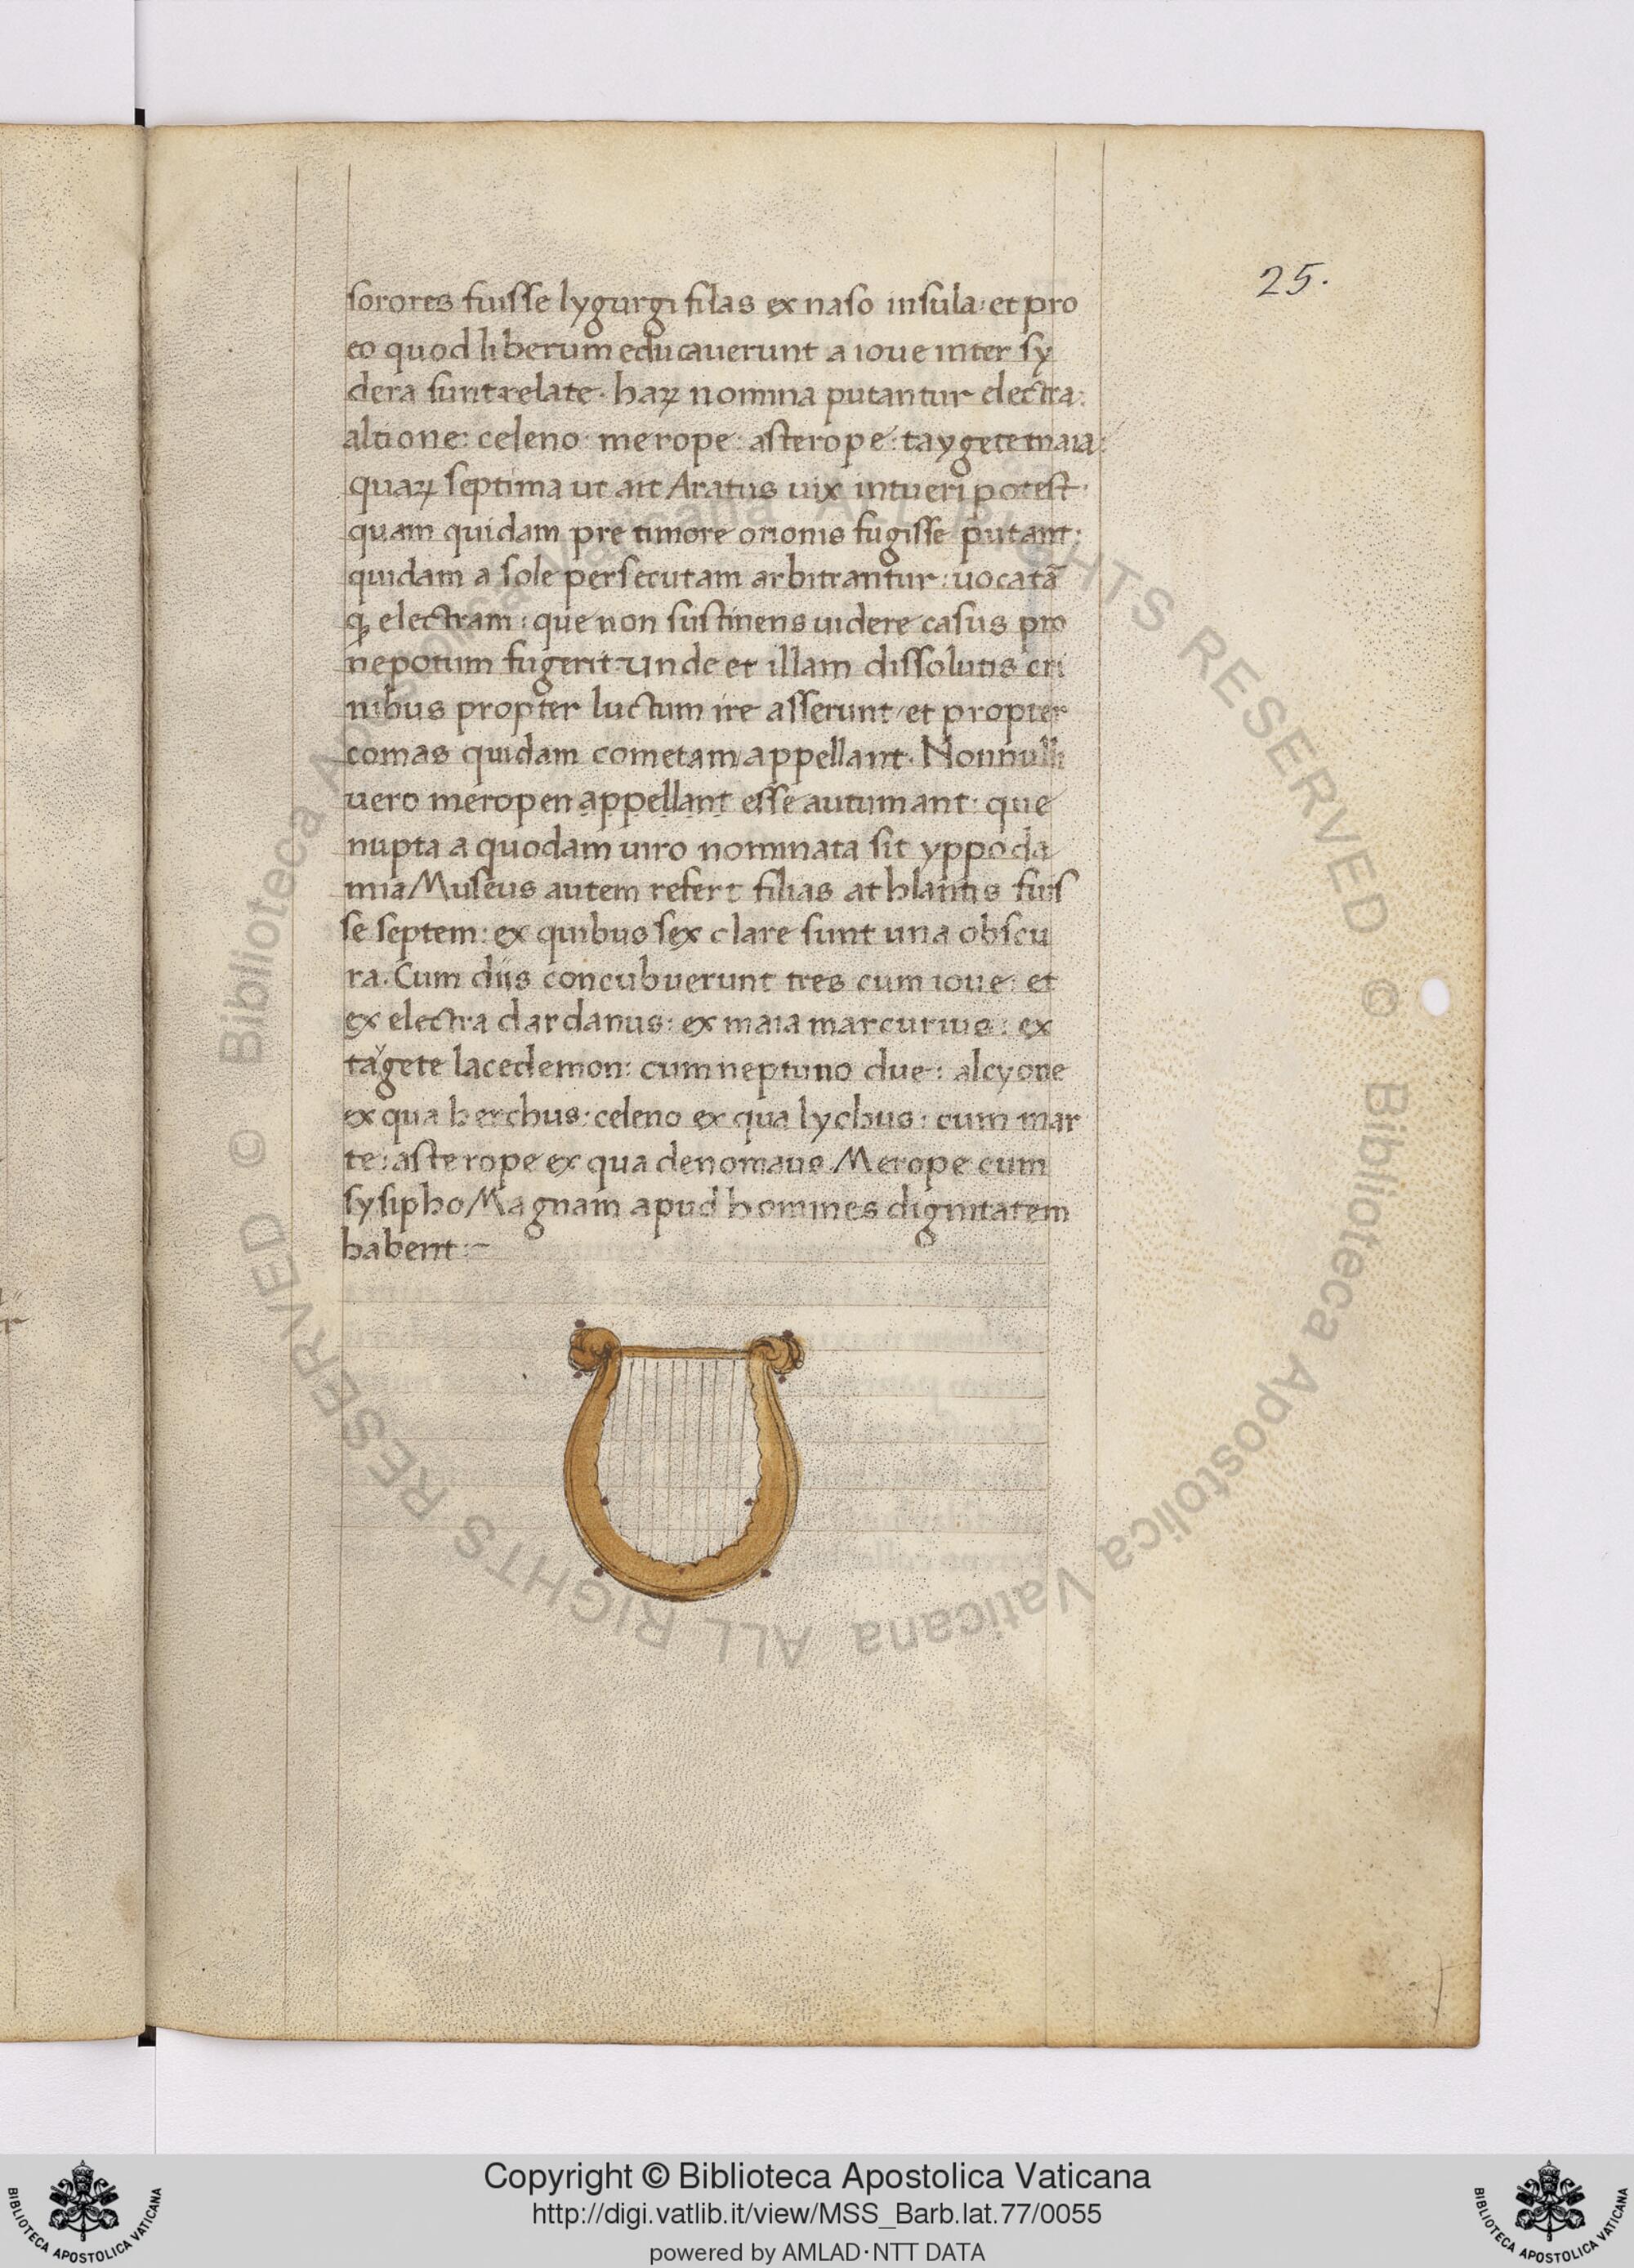 25.
sorores fuisse lygurgi filas ex naso insula: et pro
eo quod liberum educauerunt a ioue inter sy
dera sunt relate. haꝝ nomina putantur electra:
altione: celeno: merope: asterope: taygete maia:
quaꝝ septima ut ait Aratus uix intueri potest.
quam quidam pre timore orionis fugisse putant:
quidam a sole persecutam arbitrantur: uocatā
qꝫ electram: que non sustinens uidere casus pro
nepotum fugerit. unde et illam dissolutis cri
nibus propter luctum ire asserunt/ et propter
comas quidam cometam appellant. Nonnulli
uero meropen appellant esse autumant: que
nupta a quodam uiro nominata sit yppoda
mia Museus autem refert filias athlantis fuis
se septem: ex quibus sex clare sunt una obscu
ra. Cum diis concubuerunt tres cum ioue: et
ex electra dardanus: ex maia marcurius: ex
taygete lacedemon: cum neptuno due: alcyone
ex qua herchus: celeno ex qua lychus: cum mar
te: asterope ex qua denomaus. Merope cum
sysipho Magnam apud homines dignitatem
habent:~
© Biblioteca Apostolica Vaticana ALL RIGHTS RESERVED
© Biblioteca Apostolica Vaticana ALL RIGHTS RESERVED
BIBLIOTECA APOSTOLICA VATICANA
Copyright © Biblioteca Apostolica Vaticana
http://digi.vatlib.it/view/MSS_Barb.lat.77/0055
powered by AMLAD·NTT DATA
BIBLIOTECA APOSTOLICA VATICANA